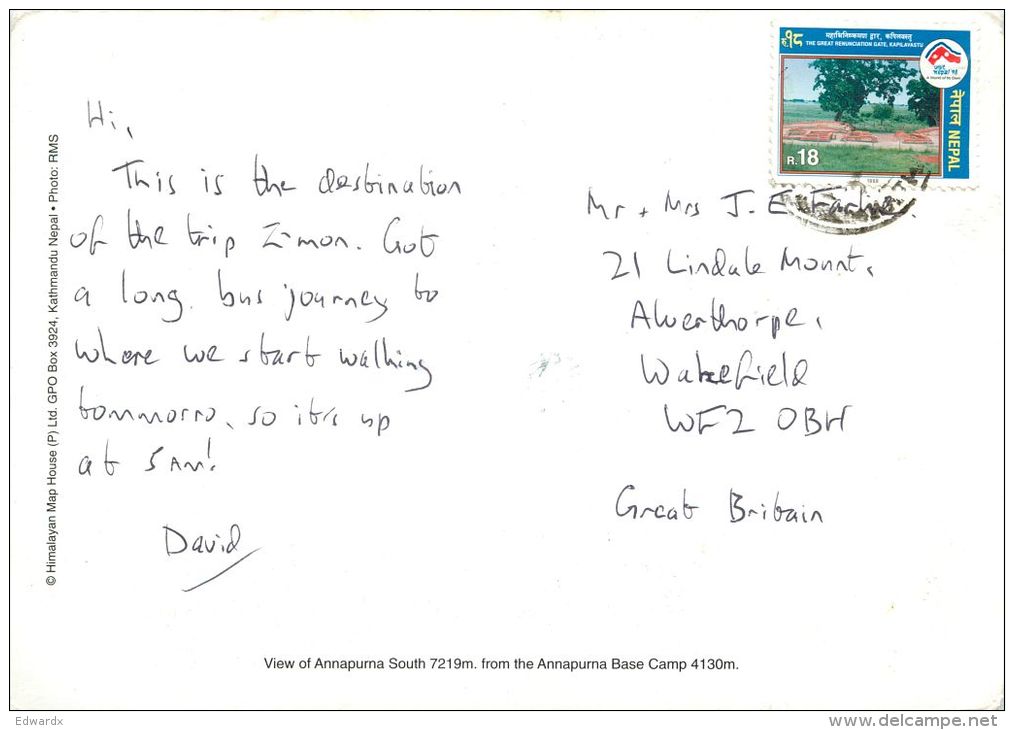 Hi,
This is the destination
of the trip I'm on. Got
a long bus journey to
where we start walking
tommorro, so it's up
at 5 AM!
David
© Himalayan Map House (P) Ltd. GPO Box 3924, Kathmandu Nepal • Photo: RMS
View of Annapurna South 7219m. from the Annapurna Base Camp 4130m.
रु.१८
महाभिनिष्क्रमण द्वार, कपिलवस्तु
THE GREAT RENUNCIATION GATE, KAPILAVASTU
visit
nepal '98
A World of Its Own
नेपाल NEPAL
R.18
1998
Mr + Mrs J. E.
21 Lindale Mount,
Alverthorpe,
Wakefield
WF2 0BH
Great Britain
Edwardx
www.delcampe.net